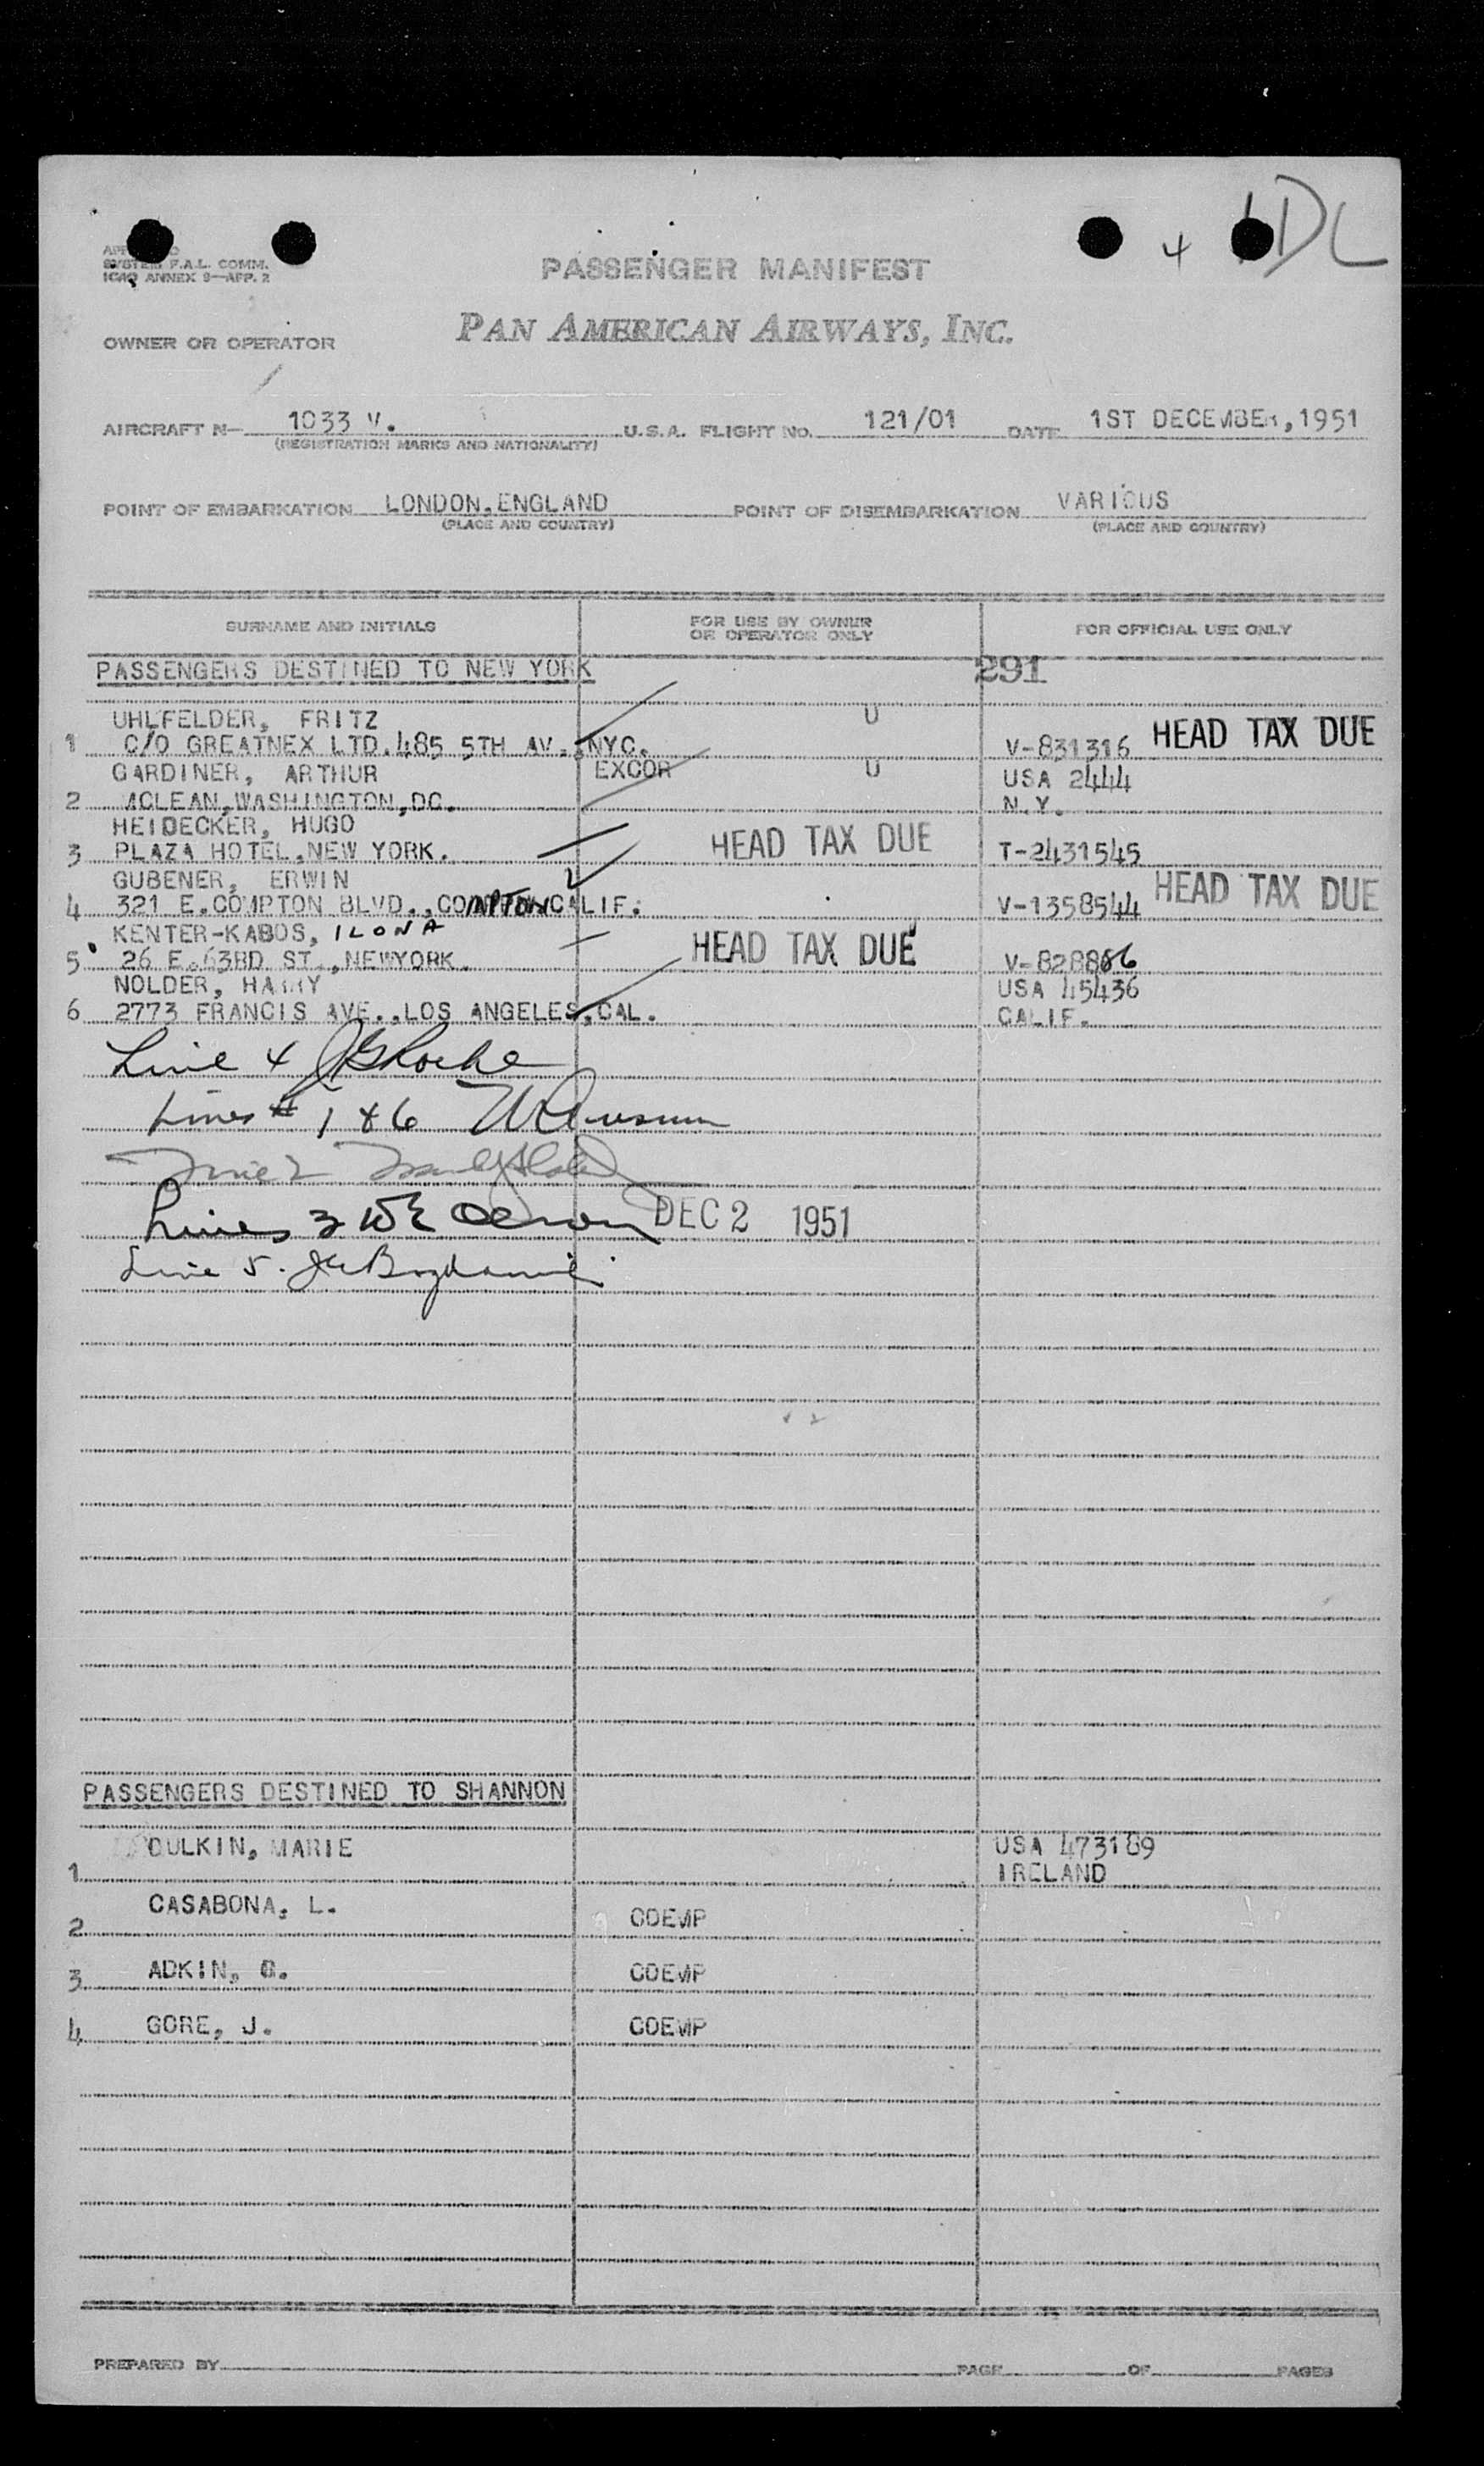 4 DL
SYSTEM F.A.L. COMM.
ICAO ANNEX 9—APP. 2
PASSENGER MANIFEST
OWNER OR OPERATOR
PAN AMERICAN AIRWAYS, INC.
AIRCRAFT N— 1033 V. U.S.A. FLIGHT NO. 121/01 DATE 1ST DECEMBER,1951
(REGISTRATION MARKS AND NATIONALITY)
POINT OF EMBARKATION LONDON,ENGLAND POINT OF DISEMBARKATION VARIOUS
(PLACE AND COUNTRY) (PLACE AND COUNTRY)
SURNAME AND INITIALS FOR USE BY OWNER OR OPERATOR ONLY FOR OFFICIAL USE ONLY
PASSENGERS DESTINED TO NEW YORK 291
UHLFELDER, FRITZ U
1 C/O GREATNEX LTD.485 5TH AV.,NYC. V-831316 HEAD TAX DUE
GARDINER, ARTHUR EXCOR U USA 2444
2 MCLEAN,WASHINGTON,DC. N.Y.
HEIDECKER, HUGO
3 PLAZA HOTEL,NEW YORK. HEAD TAX DUE T-2431545
GUBENER, ERWIN
4 321 E.COMPTON BLVD.,COMPTON CALIF. V-1358544 HEAD TAX DUE
KENTER-KABOS, ILONA
5 26 E.63RD ST.,NEWYORK. HEAD TAX DUE V-828886
NOLDER, HARRY USA 45436
6 2773 FRANCIS AVE.,LOS ANGELES,CAL. CALIF.
Line 4 JG Roche
Lines # 1 & 6
Line 2
Lines 3 DEC 2 1951
Line 5.
PASSENGERS DESTINED TO SHANNON
CULKIN, MARIE USA 473189
1 IRELAND
CASABONA, L. COEMP
2
3 ADKIN, G. COEMP
4 GORE, J. COEMP
PREPARED BY PAGE OF PAGES